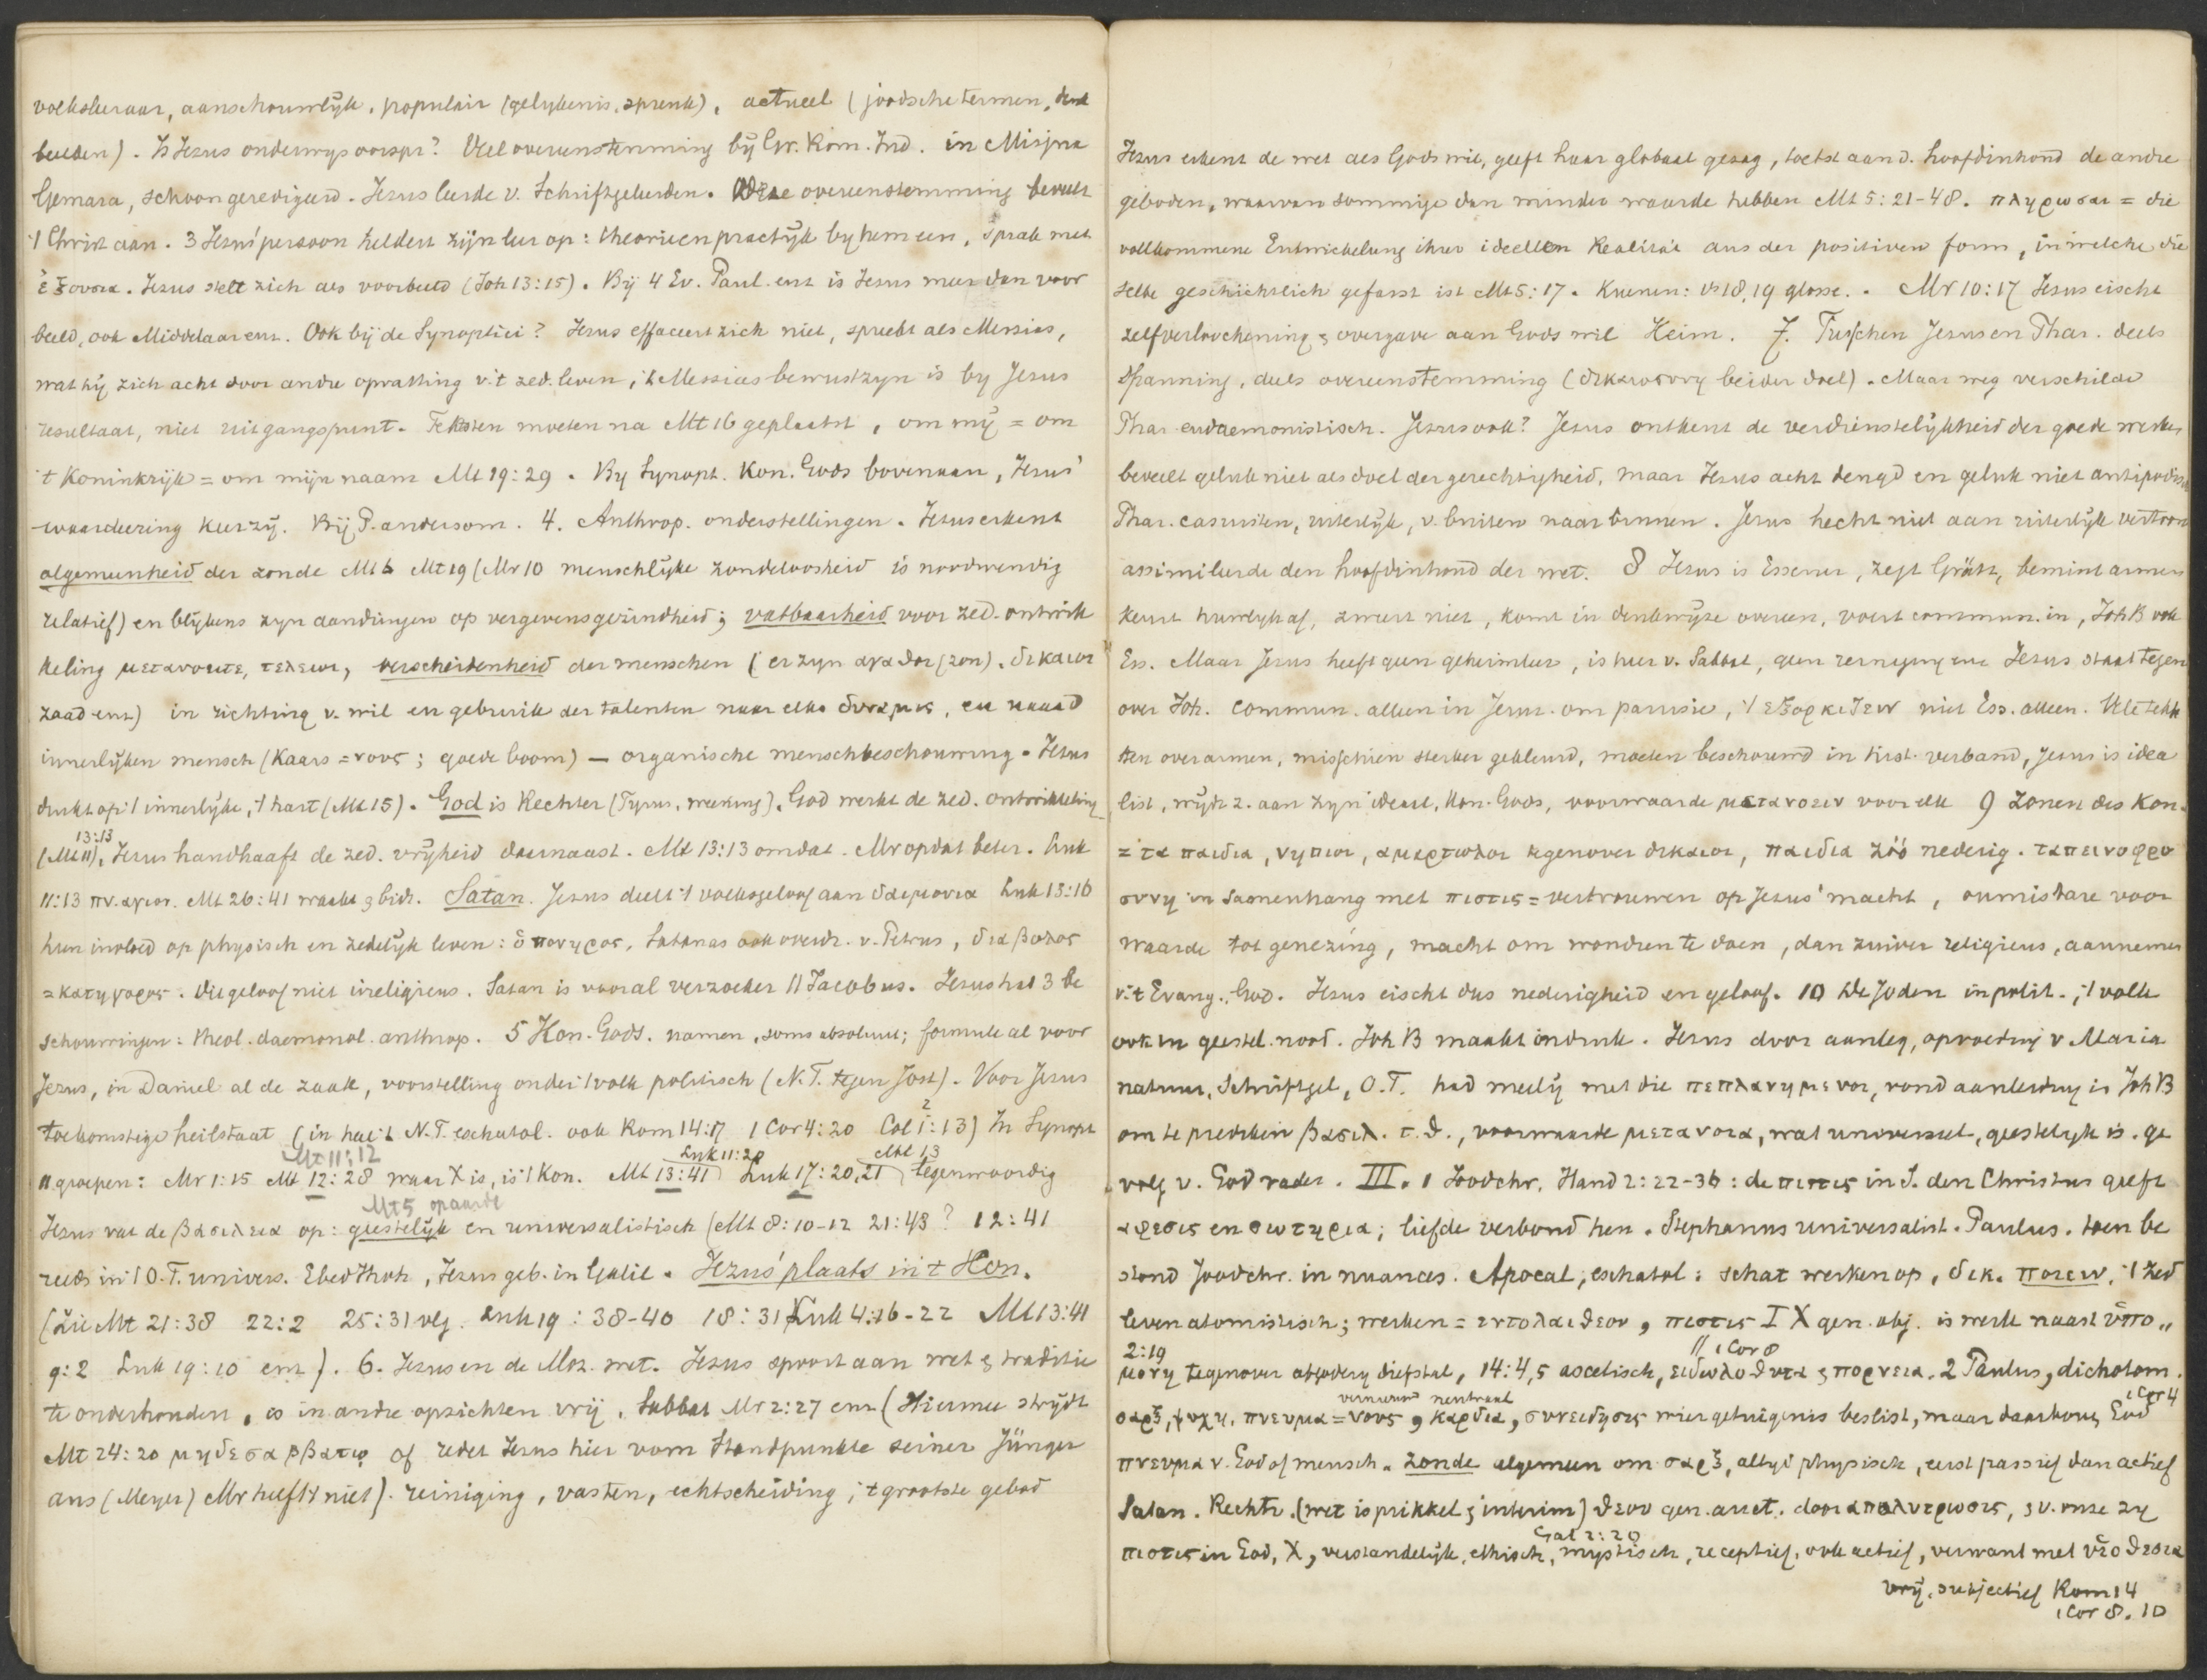 volksleraar, aanschouwlijk, populair (gelijkenis, spreuk), actueel (joodsche termen, denk
beelden). Is Jezus onderwijs oorspr? Veel overeenstemming bij Gr. Rom. Ind. in Misjna
Gemara, schoon geredigeerd. Jezus leerde v. Schriftgeleerden. Deze overeenstemming beveelt
't Christ aan. 3 Jezus' persoon heldert zijn leer op: theorie en practijk by hem een, sprak met
ἐξουσια. Jezus stelt zich als voorbeeld (Joh 13:15). Bij 4 Ev. Paul. enz is Jezus meer dan voor
beeld, ook Middelaar enz. Ook bij de Synoptici? Jezus effaceert zich niet, spreekt als Messias,
wat hij zich acht door andre opvatting v. 't zed. leven, 't Messiasbewustzyn is by Jezus
resultaat, niet uitgangspunt. Teksten moeten na Mt 16 geplaatst, om mij = om
't Koninkrijk = om mijn naam Mt 19:29. By Synopt. Kon. Gods bovenaan, Jezus'
waardeering keerzij. Bij P. andersom. 4. Anthrop. onderstellingen. Jezus erkent
algemeenheid der zonde Mt 6 Mt 19 (Mr 10 menschlijke zondeloosheid is noodwendig
relatief) en blijkens zyn aandringen op vergevensgezindheid; vatbaarheid voor zed. ontwik
keling μετανοειτε, τελειοι, verscheidenheid der menschen (er zyn αγαθοι (zon). δικαιοι
zaad enz) in richting v. wil en gebruik der talenten naar elks δυναμις, en naar d
innerlijken mensch (Kaars = νους; goede boom) — organische menschbeschouwing. Jezus
drukt op 't innerlijke, 't hart (Mt 15). God is Rechter (Tyrus, wreking). God werkt de zed. ontwikkeling
13:13
(Mt 11), Jezus handhaaft de zed. vrijheid daarnaast. Mt 13:13 omdat. Mr opdat beter. Luk
11:13 πν. αγιον. Mt 26:41 waakt & bidt. Satan. Jezus deelt 't volksgeloof aan δαιμονια Luk 13:16
hun invloed op physisch en zedelijk leven: ὁ πονηρος, Satanas ook overdr. v. Petrus, διαβολος
= κατηγορος. Dit geloof niet irreligieus. Satan is vooral verzoeker // Jacobus. Jezus had 3 be
schouwingen: theol. daemonol. anthrop. 5 Kon. Gods. namen, soms absoluut; formule al voor
Jezus, in Daniel al de zaak, voorstelling onder 't volk politisch (N.T. tegen Jost). Voor Jezus
2
toekomstige heilstaat (in heel 't N.T. eschatol. ook Rom 14:17 1 Cor 4:20 Col 1:13) In Synopt
Mt 11:12 Luk 11:20 Mt 13
11 groepen: Mr 1:15 Mt 12:28 waar X is, is 't Kon. Mt 13:41 Luk 17:20,21 tegenwoordig
Mt 5 op aarde
Jezus vat de βασιλεια op: geestelijk en universalistisch (Mt 8:10-12 21:43? 12:41
reeds in 't O.T. univers. Ebed Jhvh, Jezus geb. in Galil. Jezus' plaats in 't Kon.
(Zie Mt 21:38 22:2 25:31 vlg. Luk 19:38-40 18:31 Luk 4:16-22 Mt 13:41
9:2 Luk 19:10 enz). 6. Jezus en de Moz. wet. Jezus spoort aan wet & traditie
te onderhouden, is in andre opzichten vrij, Sabbat Mr 2:27 enz (Hiermee strijdt
Mt 24:20 μηδε σαββατῳ of redet Jezus hier vom Standpunkte seiner Jünger
aus (Meyer) Mr heeft 't niet). reiniging, vasten, echtscheiding; 't grootste gebod
Jezus erkent de wet als Gods wil, geeft haar globaal gezag, toetst aan d. hoofdinhoud de andre
geboden, waarvan sommige dan minder waarde hebben Mt 5:21-48. πληρωσαι = die
vollkommene Entwickelung ihrer ideellen Realität aus der positiven form, in welche die
selbe geschichtlich gefasst ist Mt 5:17. Kuenen: vs 18,19 glosse. Mr 10:17 Jezus eischt
zelfverloochening & overgave aan Gods wil Heim. 7. Tusschen Jezus en Phar. deels
spanning, deels overeenstemming (δικαιοσυνη beider doel). Maar weg verschilde
Phar. eudaemonistisch. Jezus ook? Jezus ontkent de verdienstelijkheid der goede werken
beveelt geluk niet als doel der gerechtigheid, maar Jezus acht deugd en geluk niet antipodisch
Phar. casuisten, uiterlijk, v. buiten naar binnen. Jezus hecht niet aan uiterlijk vertoon
assimileerde den hoofdinhoud der wet. 8 Jezus is Essener, zegt Grätz, bemint armen
keurt huwlyk af, zweert niet, komt in denkwijze overeen, voert commun. in, Joh B ook
Ess. Maar Jezus heeft geen geheimleer, is heer v. Sabbat, geen reiniging enz Jezus staat tegen
over Joh. commun. alleen in Jeruz. om parusie, 't εξορκιζειν niet Ess. alleen. Vele tekk
sten over armen, misschien sterker gekleurd, moeten beschouwd in hist. verband, Jezus is idea
list, wijdt z. aan zyn ideaal, Kon. Gods, voorwaarde μετανοειν voor elk 9 Zonen des Kon.
= τα παιδια, νηπιοι, αμαρτωλοι tegenover δικαιοι, παιδια zóó nederig. ταπεινοφρο
συνη in samenhang met πιστις = vertrouwen op Jezus' macht, onmisbare voor
waarde tot genezing, macht om wondren te doen, dan zuiver religieus, aannemen
v. 't Evang., God. Jezus eischt dus nederigheid en geloof. 10 De Joden in polit., 't volk
ook in geestel. nood. Joh B maakt indruk. Jezus door aanleg, opvoeding v Maria
natuur, Schriftgel, O.T. had medelij met die πεπλανημενοι, vond aanleiding in Joh B
om te prediken βασιλ. τ. θ., voorwaarde μετανοια, wat universeel, geestelyk is. ge
volg v. God vader. III. 1 Joodchr. Hand 2:22-36: de πιστις in J. den Christus geeft
αφεσις en σωτηρια; liefde verbond hen. Stephanus universalist. Paulus. toen be
stond Joodchr. in nuances. Apocal, eschatol: schat werken op, δικ. ποιειν, 't zed
leven atomistisch; werken = εντολαι θεου, πιστις Ι Χ gen. obj. is werk naast ὑπο„
2:19 // 1 Cor 8
μονη tegenover afgodery diefstal, 14:4,5 ascetisch, ειδωλοθυτα & πορνεια. 2 Paulus, dichotom.
vernieuwd neutraal 1 Cor 4
σαρξ, ψυχη, πνευμα = νους, καρδια, συνειδησις wier getuigenis beslist, maar daarboven God
πνευμα v. God of mensch. zonde algemeen om σαρξ, altyd physisch, eerst passief dan actief
Satan. Rechtv. (wet is prikkel & interim) θεου gen. auct. door απολυτρωσις, & v. onze zy
Gal 2:20
πιστις in God, X, verstandelijk, ethisch, mystisch, receptief, ook actief, verwant met ὑιοθεσια
vrij, subjectief Rom 14
1 Cor 8. 10